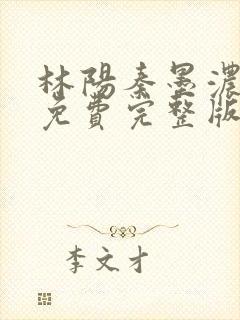 林陽秦墨濃
免費完整版
李文才